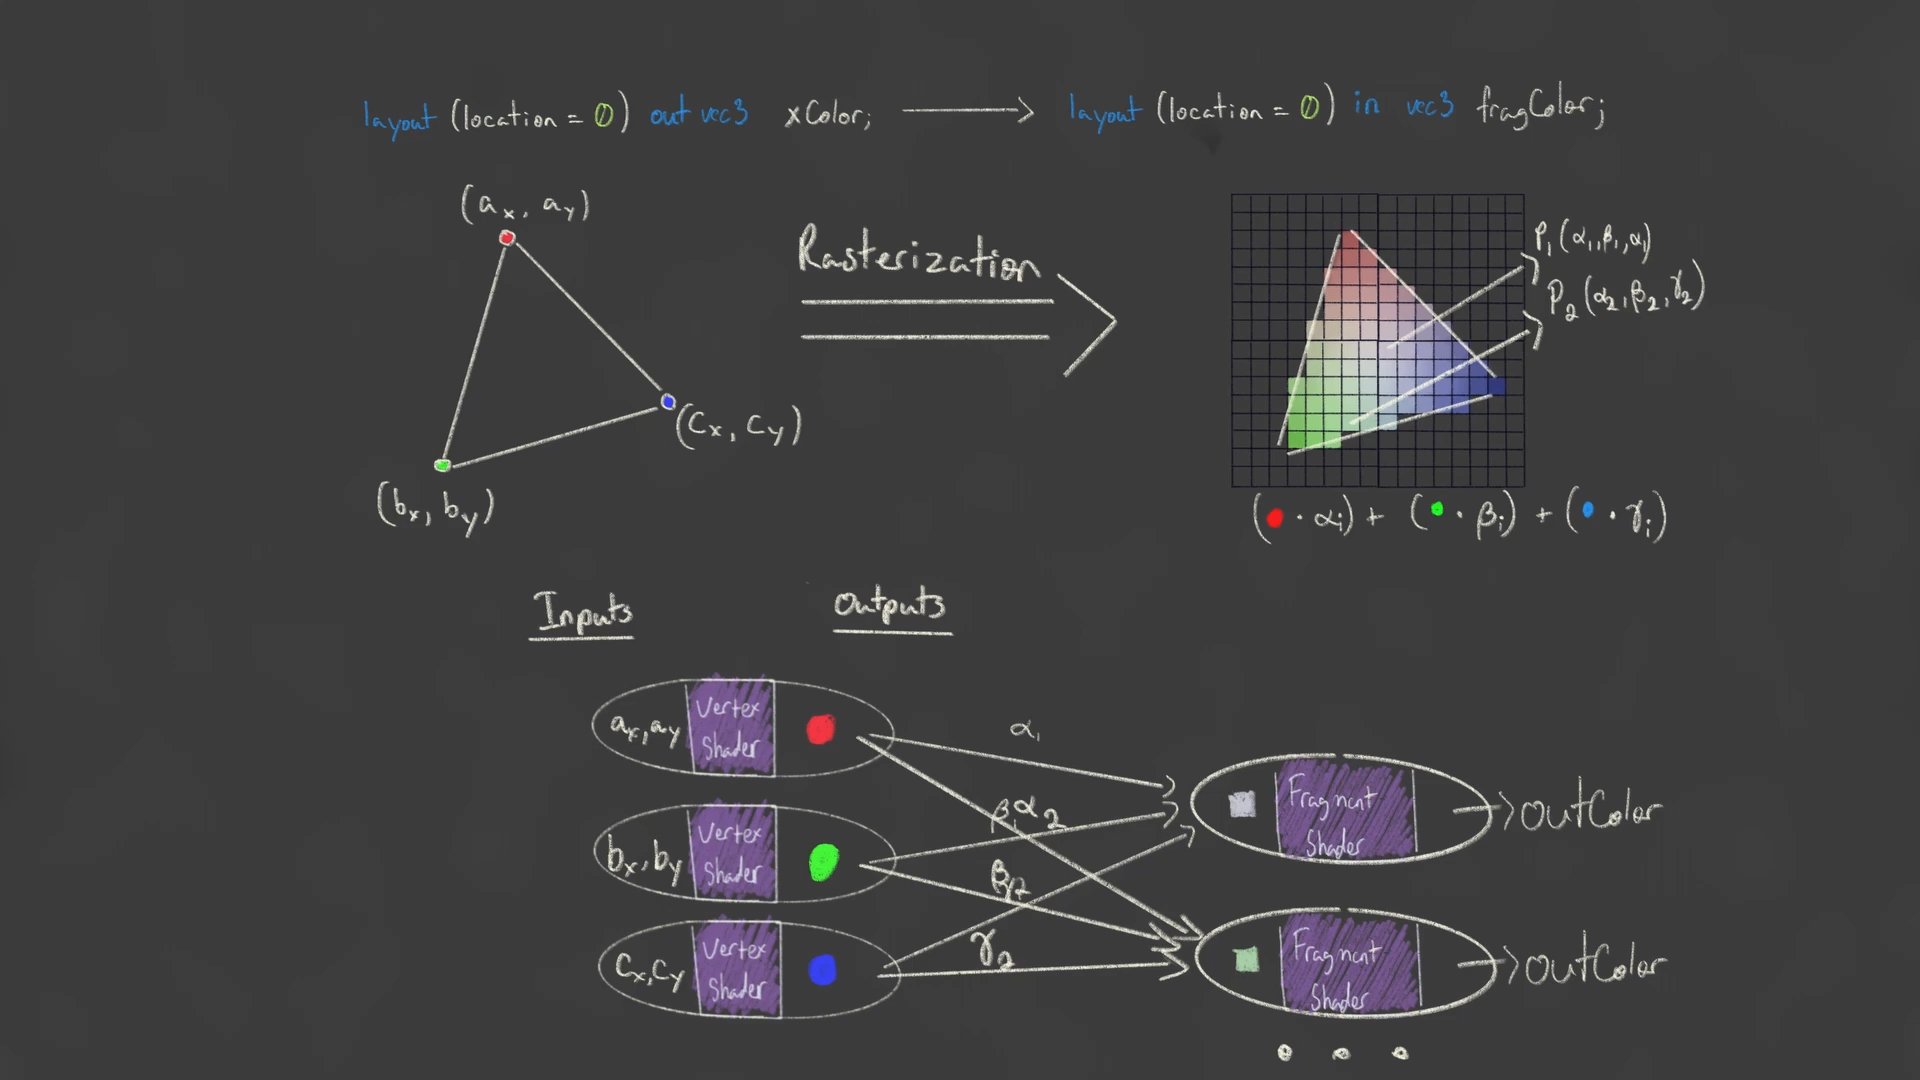 layout (location = 0) out vec3 xColor; layout (location = 0) in vec3 fragColor;
(ax, ay)
Rasterization
P1 (α1, β1, α1)
P2 (α2, β2, γ2)
(cx, cy)
(bx, by)
( · αi) + ( · βi) + ( · γi)
Inputs
Outputs
ax, ay
Vertex
Shader
α1
bx, by
Vertex
Shader
β1
α2
cx, cy
Vertex
Shader
γ2
Fragment
Shader
outColor
Fragment
Shader
outColor